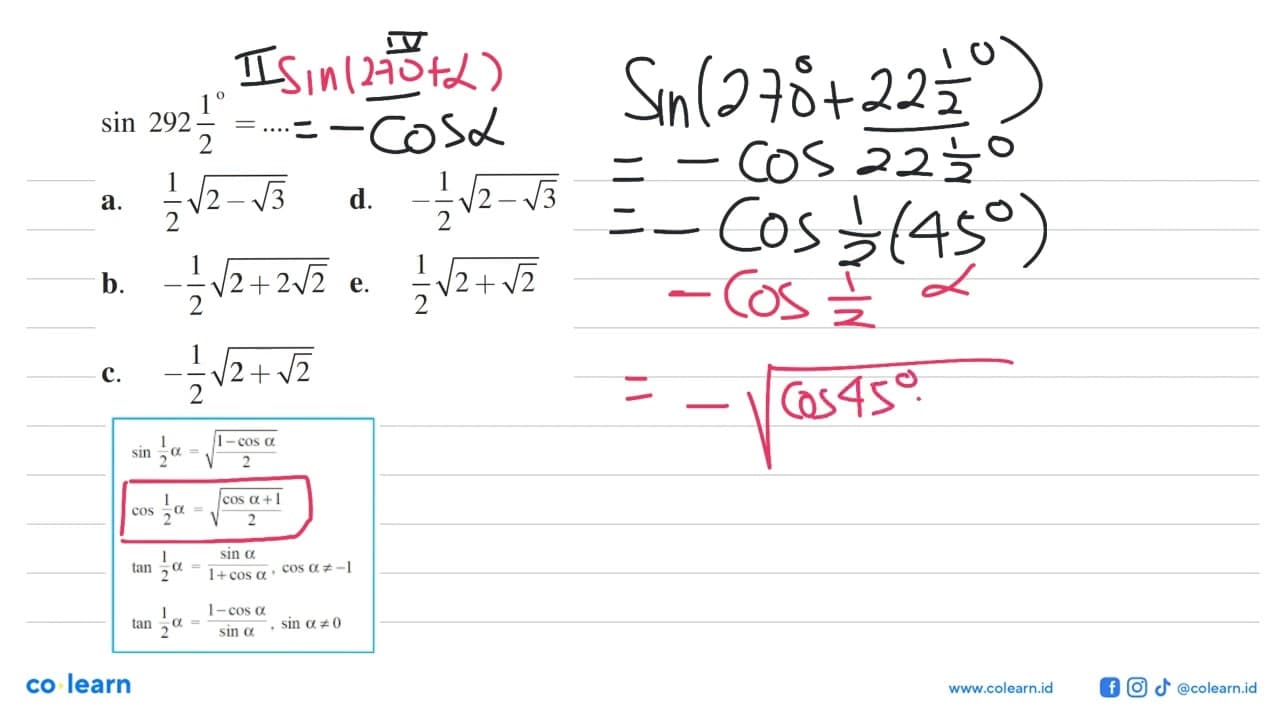 II sin(270+α) IV
sin 292 1/2° = .... = -cos α
a. 1/2 √(2 - √3) d. -1/2 √(2 - √3)
b. -1/2 √(2 + 2√2) e. 1/2 √(2 + √2)
c. -1/2 √(2 + √2)
sin 1/2 α = √((1 - cos α)/2)
cos 1/2 α = √((cos α + 1)/2)
tan 1/2 α = sin α/(1 + cos α), cos α ≠ -1
tan 1/2 α = (1 - cos α)/sin α, sin α ≠ 0
Sin(270° + 22 1/2°)
= - cos 22 1/2°
= - Cos 1/2 (45°)
- Cos 1/2 α
= - √(cos 45°.
co learn
www.colearn.id @colearn.id